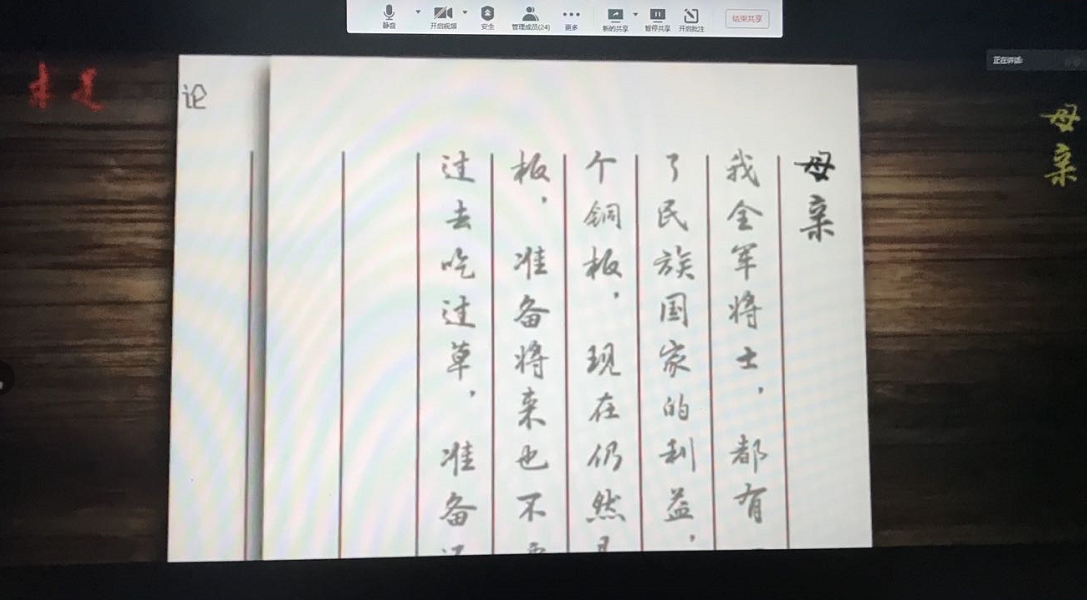 静音 开启视频 安全 管理成员(24) 更多 新的共享 暂停共享 开启批注 结束共享
正在讲话:
母亲
母亲
我全军将士，都有
了民族国家的利益，
个铜板，现在仍然
板，准备将来也不
过去吃过草，准备
论